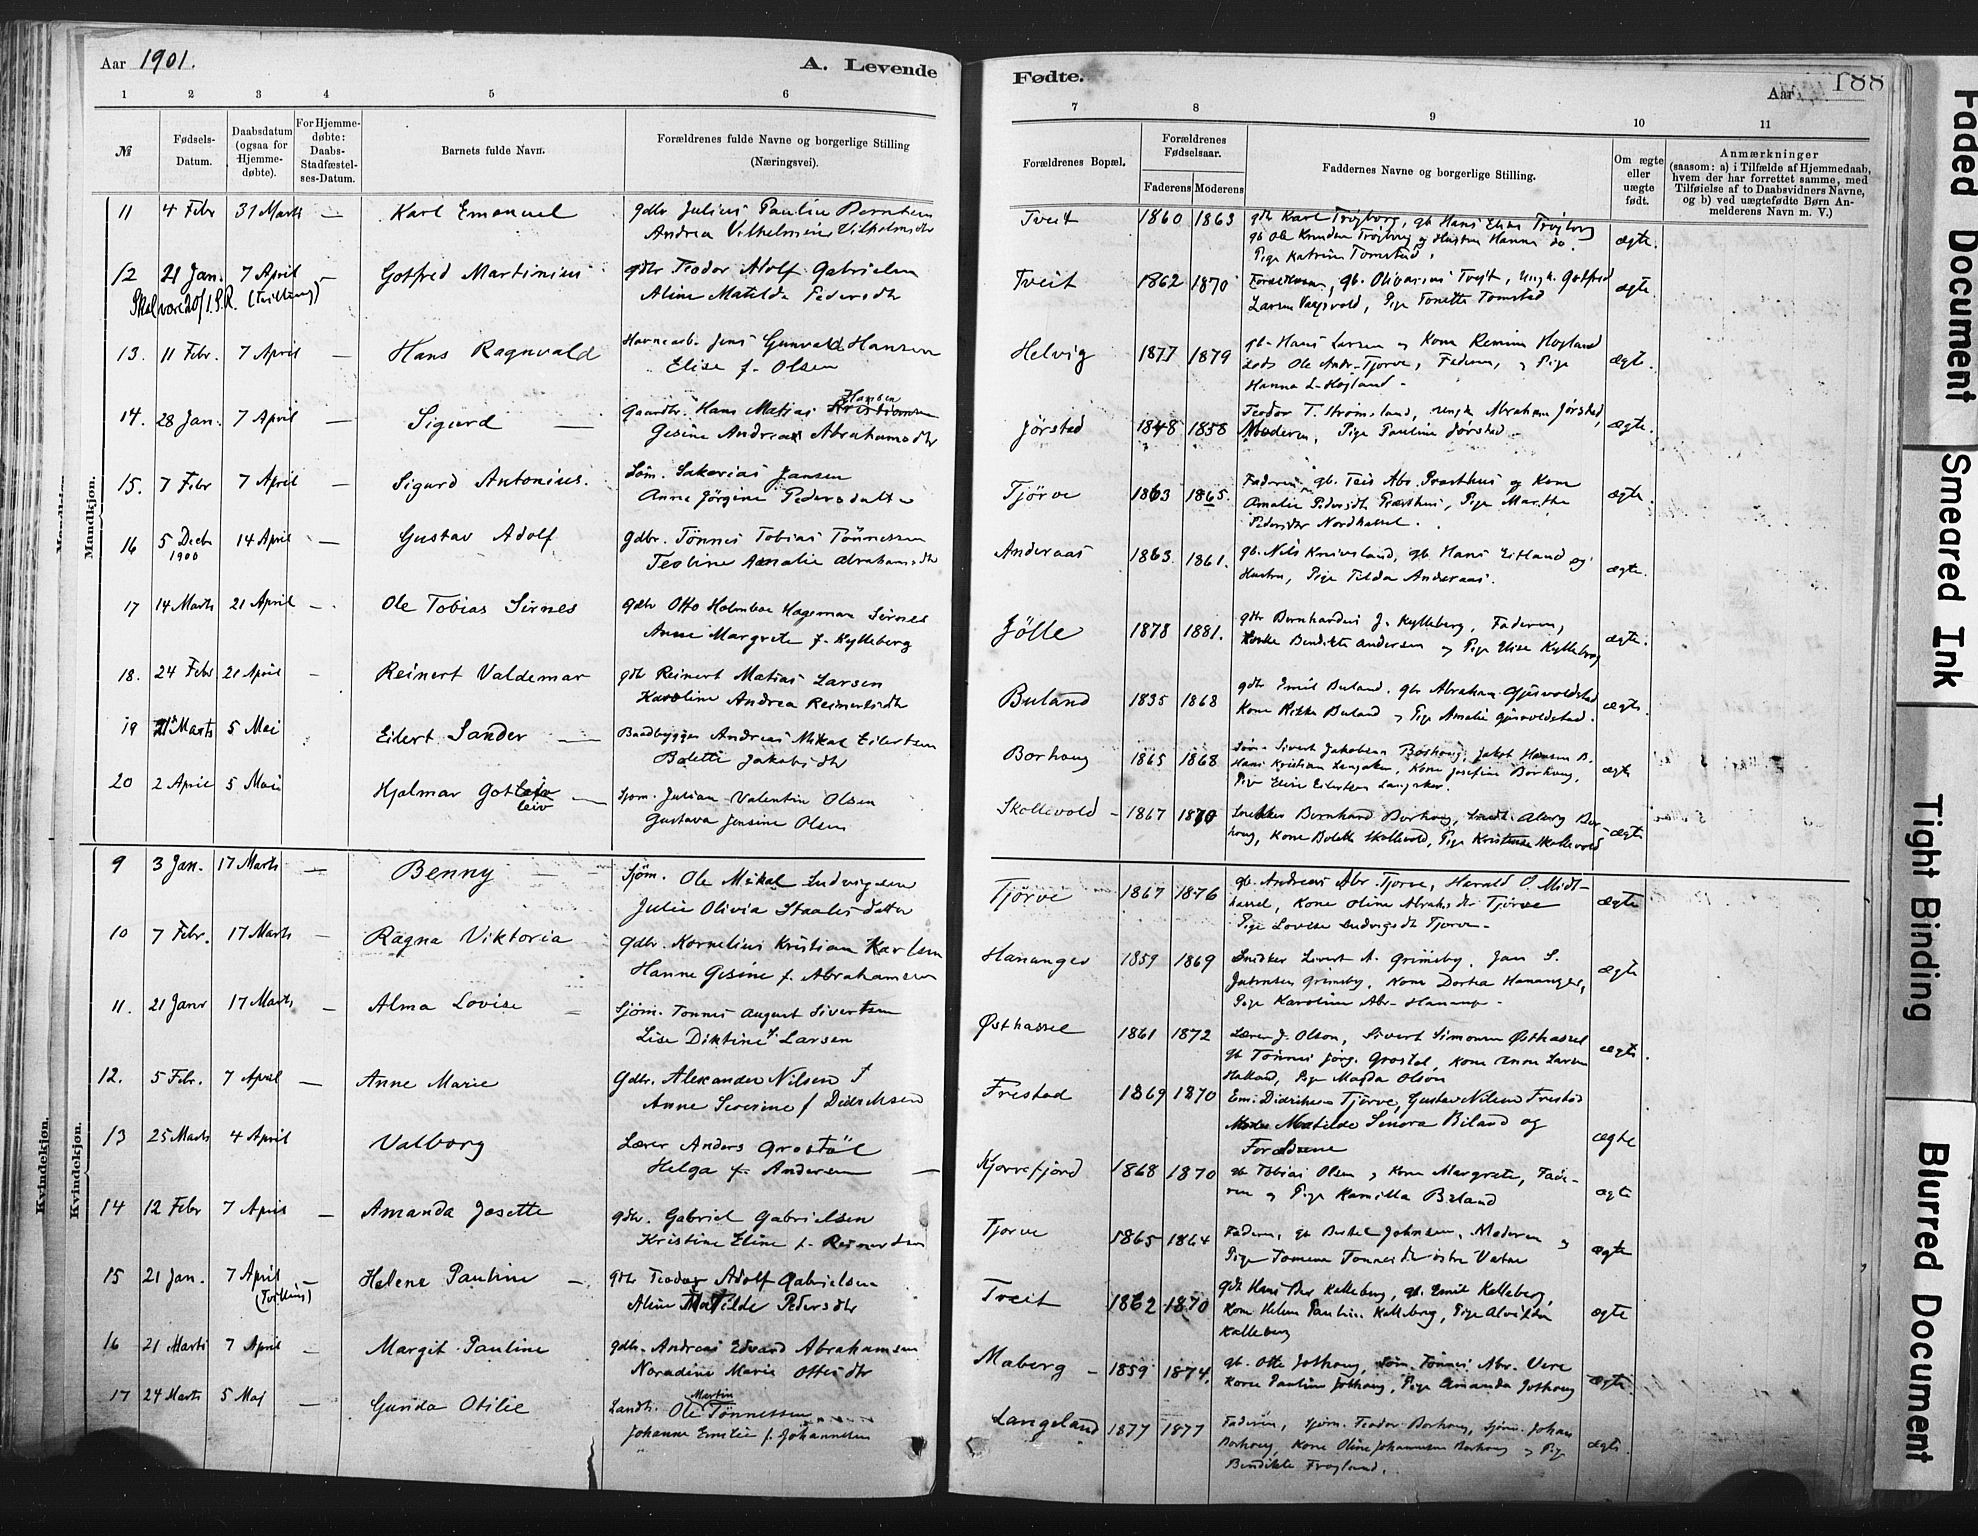 Aar 1901. A. Levende
Fødte. Aar 188
1 2 3 4 5 6 7 8 9 10 11
№
Fødsels-
Datum.
Daabsdatum
(ogsaa for
Hjemme-
døbte).
For Hjemme-
døbte:
Daabs-
Stadfæstel-
ses-Datum.
Barnets fulde Navn.
Forældrenes fulde Navne og borgerlige Stilling
(Næringsvei).
Forældrenes Bopæl.
Forældrenes
Fødselsaar.
Faderens Moderens
Faddernes Navne og borgerlige Stilling.
Om ægte
eller
uægte
født.
Anmærkninger
(saasom: a) i Tilfælde af Hjemmedaab,
hvem der har forrettet samme, med
Tilføielse af to Daabsvidners Navne,
og b) ved uægtefødte Børn An-
melderens Navn m. V.)
Mandkjøn.
11 4 Febr 31 Marts — Karl Emanuel gdbr Julius Paulin Berntsen
Andrea Vilhelmine Vilhelmsdtr
Tveit 1860 1863 gb Karl Trøjborg, gb Hans Elias Trøjborg
gb Ole Knudsen Trøjborg og Hustru Hanna do.
Pige Katrine Tomstad. ægte.
12 21 Jan. 7 April — Gotfred Martinius gdbr Teodor Adolf Gabrielsen
Skal være 20/1 S.R. (Tvilling) Aline Matilde Pedersdtr
Tveit 1862 1870 Forældrene, gb. Olivarius Tveit, ungk. Gotfred
Larsen, Pige Tonette Tomstad ægte.
13. 11 Febr. 7 April — Hans Ragnvald Havnearb. Jens Gunvald Hansen
Elise f. Olsen
Helvig 1877 1879 gb. Hans Larsen og Kone Højland
Lods Ole Andr. Tjørve, Faderen, og Pige
Hanna L. Højland. ægte.
14. 28 Jan. 7 April — Sigurd — Gaardbr. Hans Matias Kristiansen Hansen
Gesine Andrea Abrahamsdtr
Jørstad 1848 1858 Teodor T. Strømsland, ungk Abraham Jørstad,
Moderen, Pige Pauline Jørstad. ægte.
15. 7 Febr 7 April — Sigurd Antonius. Søm. Sakarias Jansen
Anne Jørgine Pedersdatter
Tjørve 1863 1865. Faderen, gb. Teis Abr. Præsthus og Kone
Amalie Pedersdtr Præsthus, Pige Marthe
Pedersdtr Nordhassel. ægte.
16 5 Decbr 14 April — Gustav Adolf gdbr. Tönnes Tobias Tönnessen
1900 Teoline Amalie Abrahamsdtr
Anderaas 1863 1861. gb. Nils Kneivsland, gb. Hans Eitland og
Hustru, Pige Tilda Anderaas. ægte.
17 14 Marts 21 April — Ole Tobias Sirnes gdbr Otto Holmboe Hageman Sirnes
Anne Margrete f. Kylleberg
Jölle 1878 1881. gdbr Bernhardus J. Kylleberg, Faderen,
Bendikte Andersen og Pige Elise Kylleberg ægte.
18. 24 Febr 21 April — Reinert Valdemar gdb Reinert Matias Larsen
Karoline Andrea Reinertsdtr
Buland 1835 1868 gdb Emil Buland. gbr Abraham Gjervoldstad
Kone Rikke Buland og Pige Amalie Gjervoldstad. ægte.
19 21 Marts 5 Mai Eilert Sander — Baadbygger Andreas Mikal Eilertsen
Bolette Jakobsdtr
Borhaug 1865 1868 Søm. Sivert Jakobsen Borhaug, Jakob Hansen B.
Hans Kristian Langaker, Kone Josefine Borhaug,
Pige Elise Eilertsen Langaker. ægte
20 2 April 5 Mai Hjalmar Gotleiv — Sjøm. Julian Valentin Olsen
leiv Gustava Jensine Olsen
Skollevold — 1867 1870 Snekker Bernhard Borhaug, Alovy Bor-
haug, Kone Bolette Skollevold, Pige Kristense Skollevold ægte
Kvindekjøn. Kvindekjøn.
9 3 Jan. 17 Marts — Benny — Sjøm. Ole Mikal Ludvigsen
Julie Olivia Staalesdatter
Tjörve 1867 1876 gb. Andreas Abr. Tjørve, Harald O Midt-
hassel, Kone Oline Abrahsdtr Tjörve
Pige Lovise Ludvigsdtr Tjørve. ægte
10 7 Febr. 17 Marts — Ragna Viktoria gdbr. Kornelius Kristian Karlsen
Hanne Gesine f. Abrahamsen
Hananger 1859 1869 Snedker Sivert A. Grimsby. Jan S.
Jakobsen Grimsby, Kone Dortea Hananger,
Pige Karoline Abr. Hanang. ægte
11. 21 Janr 17 Marts — Alma Lovise Sjøm. Tönnes August Sivertsen
Lise Diktine f. Larsen
Østhassel 1861 1872 Lærer J. Olson, Sivert Simonsen Østhassel
gb Tönnes Jörg. Grostøl, Kone Anne Larsen
Haltand, Pige Magda Olson ægte.
12. 5 Febr. 7 April — Anne Marie gdbr. Alexander Nilsen f
Anne Severine f Didriksen
Frestad 1869 1870 Em. Didriksen Tjörve, Gustav Nilsen Frestad
Matilde Senora Biland og
Forældrene ægte
13 25 Marts 4 April Valborg Lærer Anders Grostöl
Helga f. Andersen —
Kjørrefjord 1868 1870 gb Tobias Olsen og Kone Margrete, Fade-
ren og Pige Kamilla Biland ægte
14 12 Febr 7 April — Amanda Josette gdbr. Gabriel Gabrielsen
Kristine Eline f. Reinertsen
Tjorve 1865 1864 Faderen, gb Bertel Johnsen, Moderen og
Pige Tomine Tonnesdtr østre Vatne ægte
15 21 Jan. 7 April — Helene Pauline — gdbr Teodor Adolf Gabrielsen
(Tvilling) Aline Matilde Pedersdtr
Tveit 1862 1870 gdb Hans Ber Kalleberg, gb. Emil Kalleberg,
Kone Helene Pauline Kalleberg, Pige Alvilda
Kalleberg ægte
16 21 Marts 7 April — Margit Pauline gdbr. Andreas Edvard Abrahamsen
Noradine Marie Ottesdtr
Maberg — 1859 1874. gb. Otte Jøthaug, Søm. Tönnes Abr. Vere
Kone Pauline Jøthaug, Pige Amanda Jøthaug ægte.
17 24 Marts 5 Maj — Gunda Otilie Landh. Ole Martin Tönnessen
Johanne Emilie f. Johannesen
Langeland 1877 1877 Faderen, Sjøm. Teodor Borhaug, Sjøm. Johan
Borhaug, Kone Oline Johannesen Borhaug og Pige
Bendikte Frøyland. ægte.
Faded Document
Smeared Ink
Tight Binding
Blurred Document